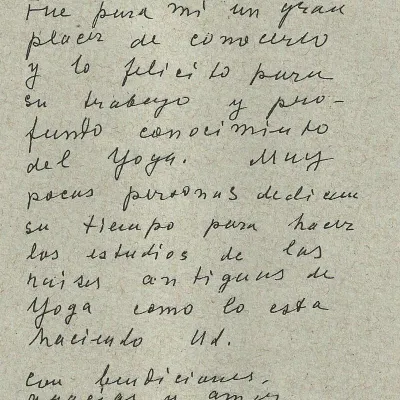 Fue para mi un gran
placer de conocerlo
y lo felicito para
su trabayo y pro-
fundo conocimiento
del Yoga. Muy
pocas personas dedican
su tiempo para hacer
los estudios de las
raises antiguas de
Yoga como lo esta
haciendo Ud.
con bendiciones,
gracias y amor